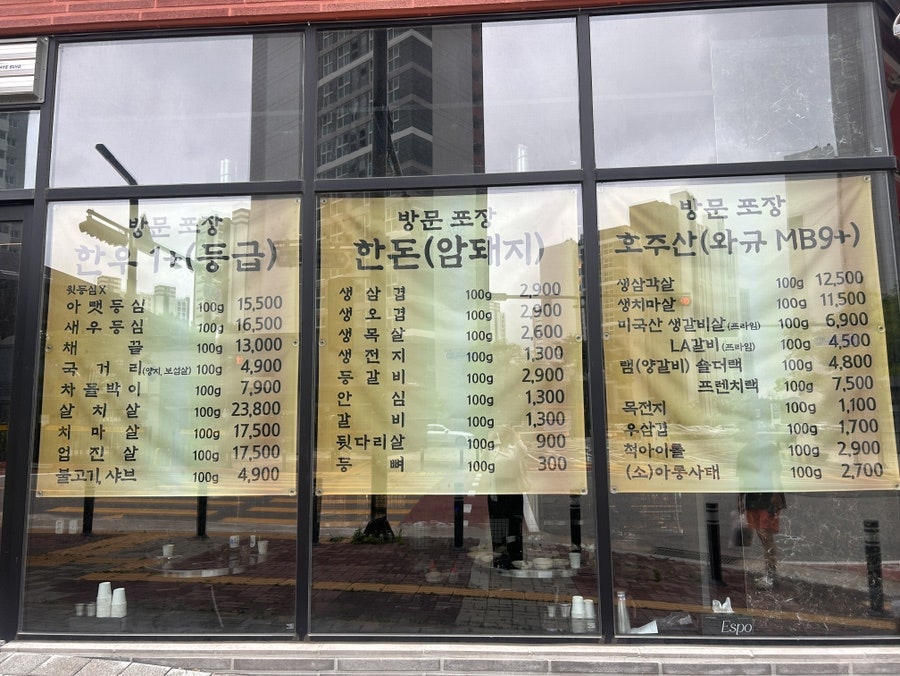 방문 포장
한우1++(등급)
윗등심X
아랫등심 100g 15,500
새우등심 100g 16,500
채끝 100g 13,000
국거리(양지, 보섭살) 100g 4,900
차돌박이 100g 7,900
살치살 100g 23,800
치마살 100g 17,500
업진살 100g 17,500
불고기, 샤브 100g 4,900
방문 포장
한돈(암돼지)
생삼겹 100g 2,900
생오겹 100g 2,900
생목살 100g 2,600
생전지 100g 1,300
등갈비 100g 2,900
안심 100g 1,300
갈비 100g 1,300
뒷다리살 100g 900
등뼈 100g 300
방문 포장
호주산(와규 MB9+)
생삼각살 100g 12,500
생치마살 100g 11,500
미국산 생갈비살(프라임) 100g 6,900
LA갈비(프라임) 100g 4,500
램(양갈비) 숄더랙 100g 4,800
프렌치랙 100g 7,500
목전지 100g 1,100
우삼겹 100g 1,700
척아이롤 100g 2,900
(소)아롱사태 100g 2,700
Espo